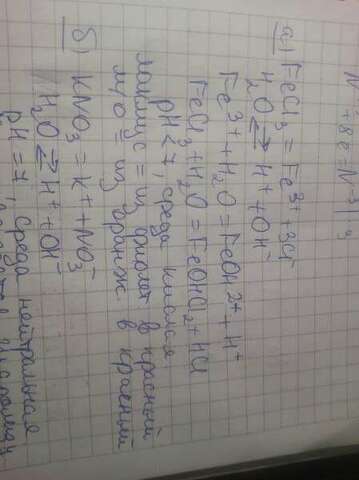 а) FeCl3 = Fe3+ + 3Cl-
H2O ⇄ H+ + OH-
Fe3+ + H2O = FeOH2+ + H+
FeCl3 + H2O = FeOHCl2 + HCl
pH<7, среда кислая
лакмус = из фиолет в красный
м/о = из оранж. в красный
б) KNO3 = K+ + NO3-
H2O ⇄ H+ + OH-
pH = 7, среда нейтральная